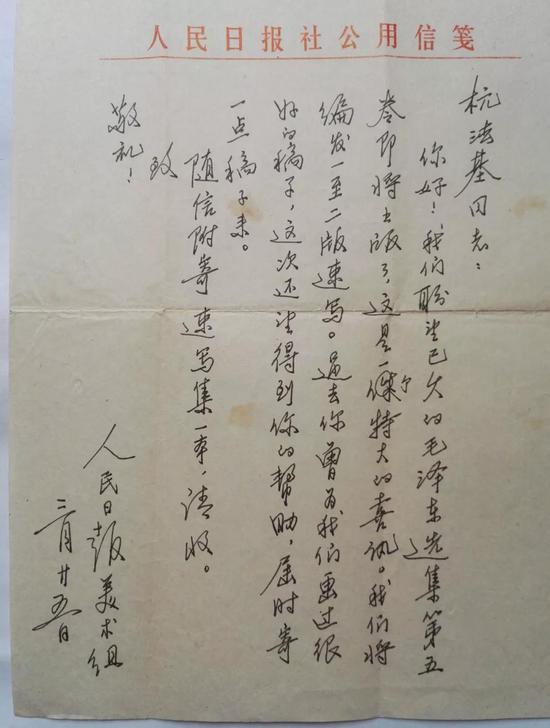 人民日报社公用信笺
杭法基同志：
你好！我们盼望已久的毛泽东选集第五
卷即将出版了，这是一件特大的喜讯。我们将
编发一至二版速写。过去你曾为我们画过很
好的稿子，这次还望得到你的帮助，届时寄
一点稿子来。
随信附寄速写集一本，请收。
致
敬礼！
人民日报美术组
三月廿五日